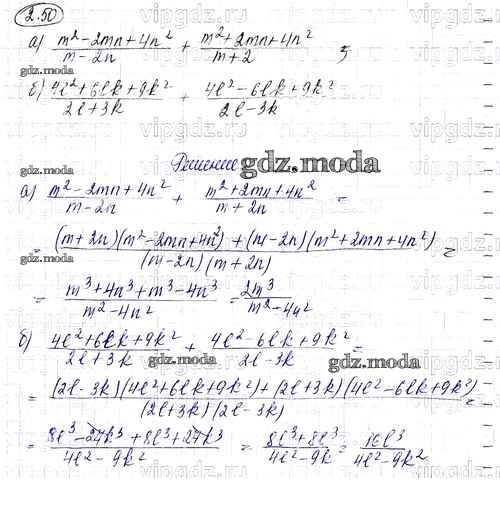 2.50
а) (m² - 2mn + 4n²)/(m - 2n) + (m² + 2mn + 4n²)/(m + 2) ;
gdz.moda
б) (4l² + 6lk + 9k²)/(2l + 3k) + (4l² - 6lk + 9k²)/(2l - 3k)
gdz.moda
Решение gdz.moda
а) (m² - 2mn + 4n²)/(m - 2n) + (m² + 2mn + 4n²)/(m + 2n) =
gdz.moda gdz.moda
= ((m + 2n)(m² - 2mn + 4n²) + (m - 2n)(m² + 2mn + 4n²))/((m - 2n)(m + 2n)) =
= (m³ + 4n³ + m³ - 4n³)/(m² - 4n²) = 2m³/(m² - 4n²)
б) (4l² + 6lk + 9k²)/(2l + 3k) + (4l² - 6lk + 9k²)/(2l - 3k) =
gdz.moda gdz.moda
= ((2l - 3k)(4l² + 6lk + 9k²) + (2l + 3k)(4l² - 6lk + 9k²))/((2l + 3k)(2l - 3k)) =
= (8l³ - 27k³ + 8l³ + 27k³)/(4l² - 9k²) = (8l³ + 8l³)/(4l² - 9k) = 16l³/(4l² - 9k²)
vipgdz.com